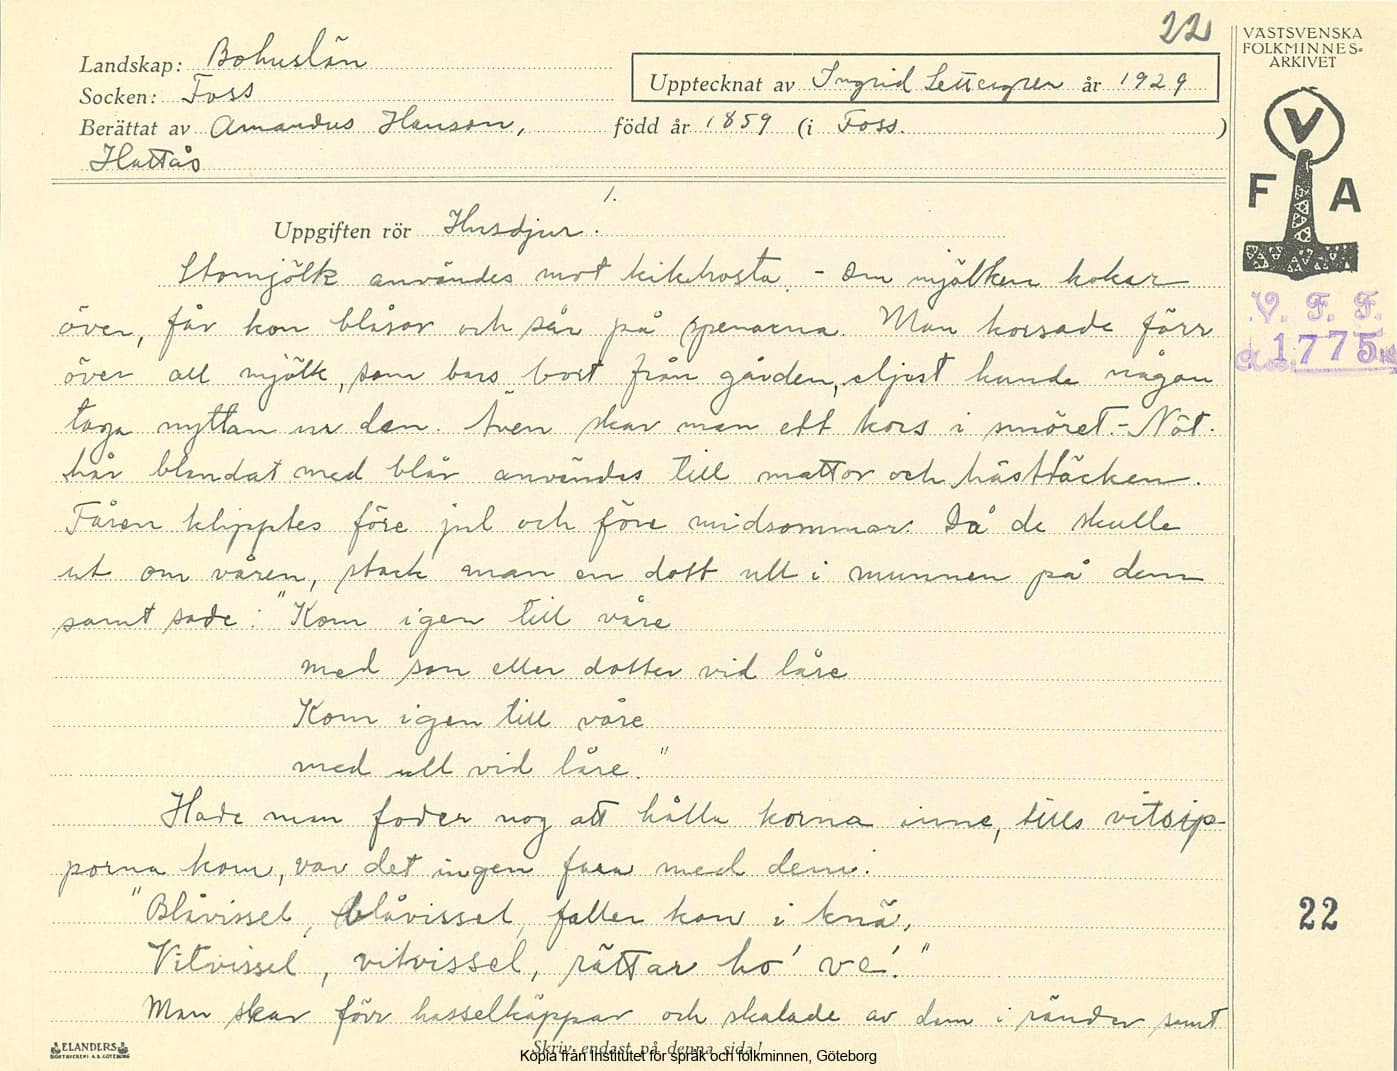 22
VÄSTSVENSKA
FOLKMINNES-
ARKIVET
Landskap: Bohuslän
Upptecknat av Ingrid Settergren år 1929
Socken: Foss
Berättat av Amandus Hanson, född år 1859 (i Foss. )
Hattås
V
F A
1.
Uppgiften rör Husdjur.
Stomjölk användes mot kikhosta. - Om mjölken kokar
över, får kon blåsor och sår på spenarna. Man korsade förr
över all mjölk, som bars bort från gården, eljest kunde någon
taga nyttan ur den. Även skar man ett kors i smöret. - Nöt-
hår blandat med blår användes till mattor och hästtäcken.
Fåren klipptes före jul och före midsommar. Då de skulle
ut om våren, stack man en dott ull i munnen på dem
samt sade: "Kom igen till våre
med son eller dotter vid låre
Kom igen till våre
med ull vid låre."
Hade man foder nog att hålla korna inne, tills vitsip-
porna kom, var det ingen fara med dem:
"Blåvissel, blåvissel, faller kon i knä,
Vitvissel, vitvissel, rättar ho' ve'."
Man skar förr hasselkäppar och skalade av dem i ränder samt
V. F. F.
1775
22
ELANDERS
BOKTRYCKERI A.B. GÖTEBORG
Skriv endast på denna sida!
Kopia från Institutet för språk och folkminnen, Göteborg